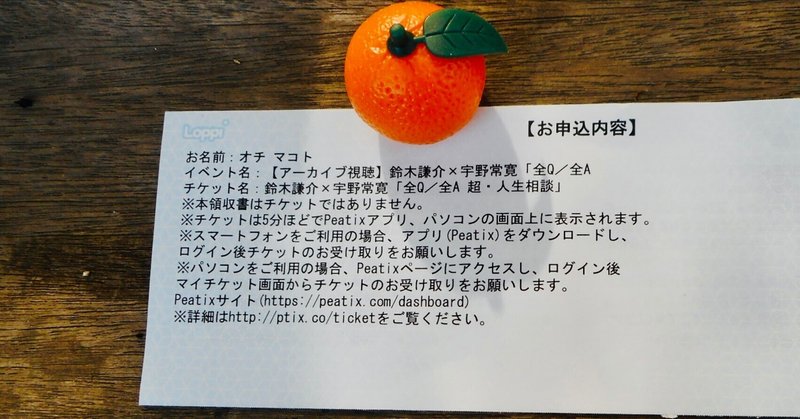 Loppi
【お申込内容】
お名前：オチ マコト
イベント名：【アーカイブ視聴】鈴木謙介×宇野常寛「全Q／全A
チケット名：鈴木謙介×宇野常寛「全Q／全A 超・人生相談」
※本領収書はチケットではありません。
※チケットは5分ほどでPeatixアプリ、パソコンの画面上に表示されます。
※スマートフォンをご利用の場合、アプリ(Peatix)をダウンロードし、
ログイン後チケットのお受け取りをお願いします。
※パソコンをご利用の場合、Peatixページにアクセスし、ログイン後
マイチケット画面からチケットのお受け取りをお願いします。
Peatixサイト(https://peatix.com/dashboard)
※詳細はhttp://ptix.co/ticketをご覧ください。